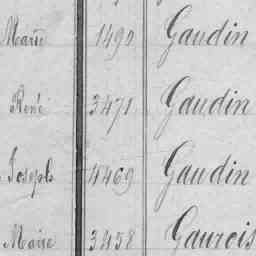 Marie 1490 Gaudin
René 3471 Gaudin
Joseph 4469 Gaudin
Marie 3458 Gaurois